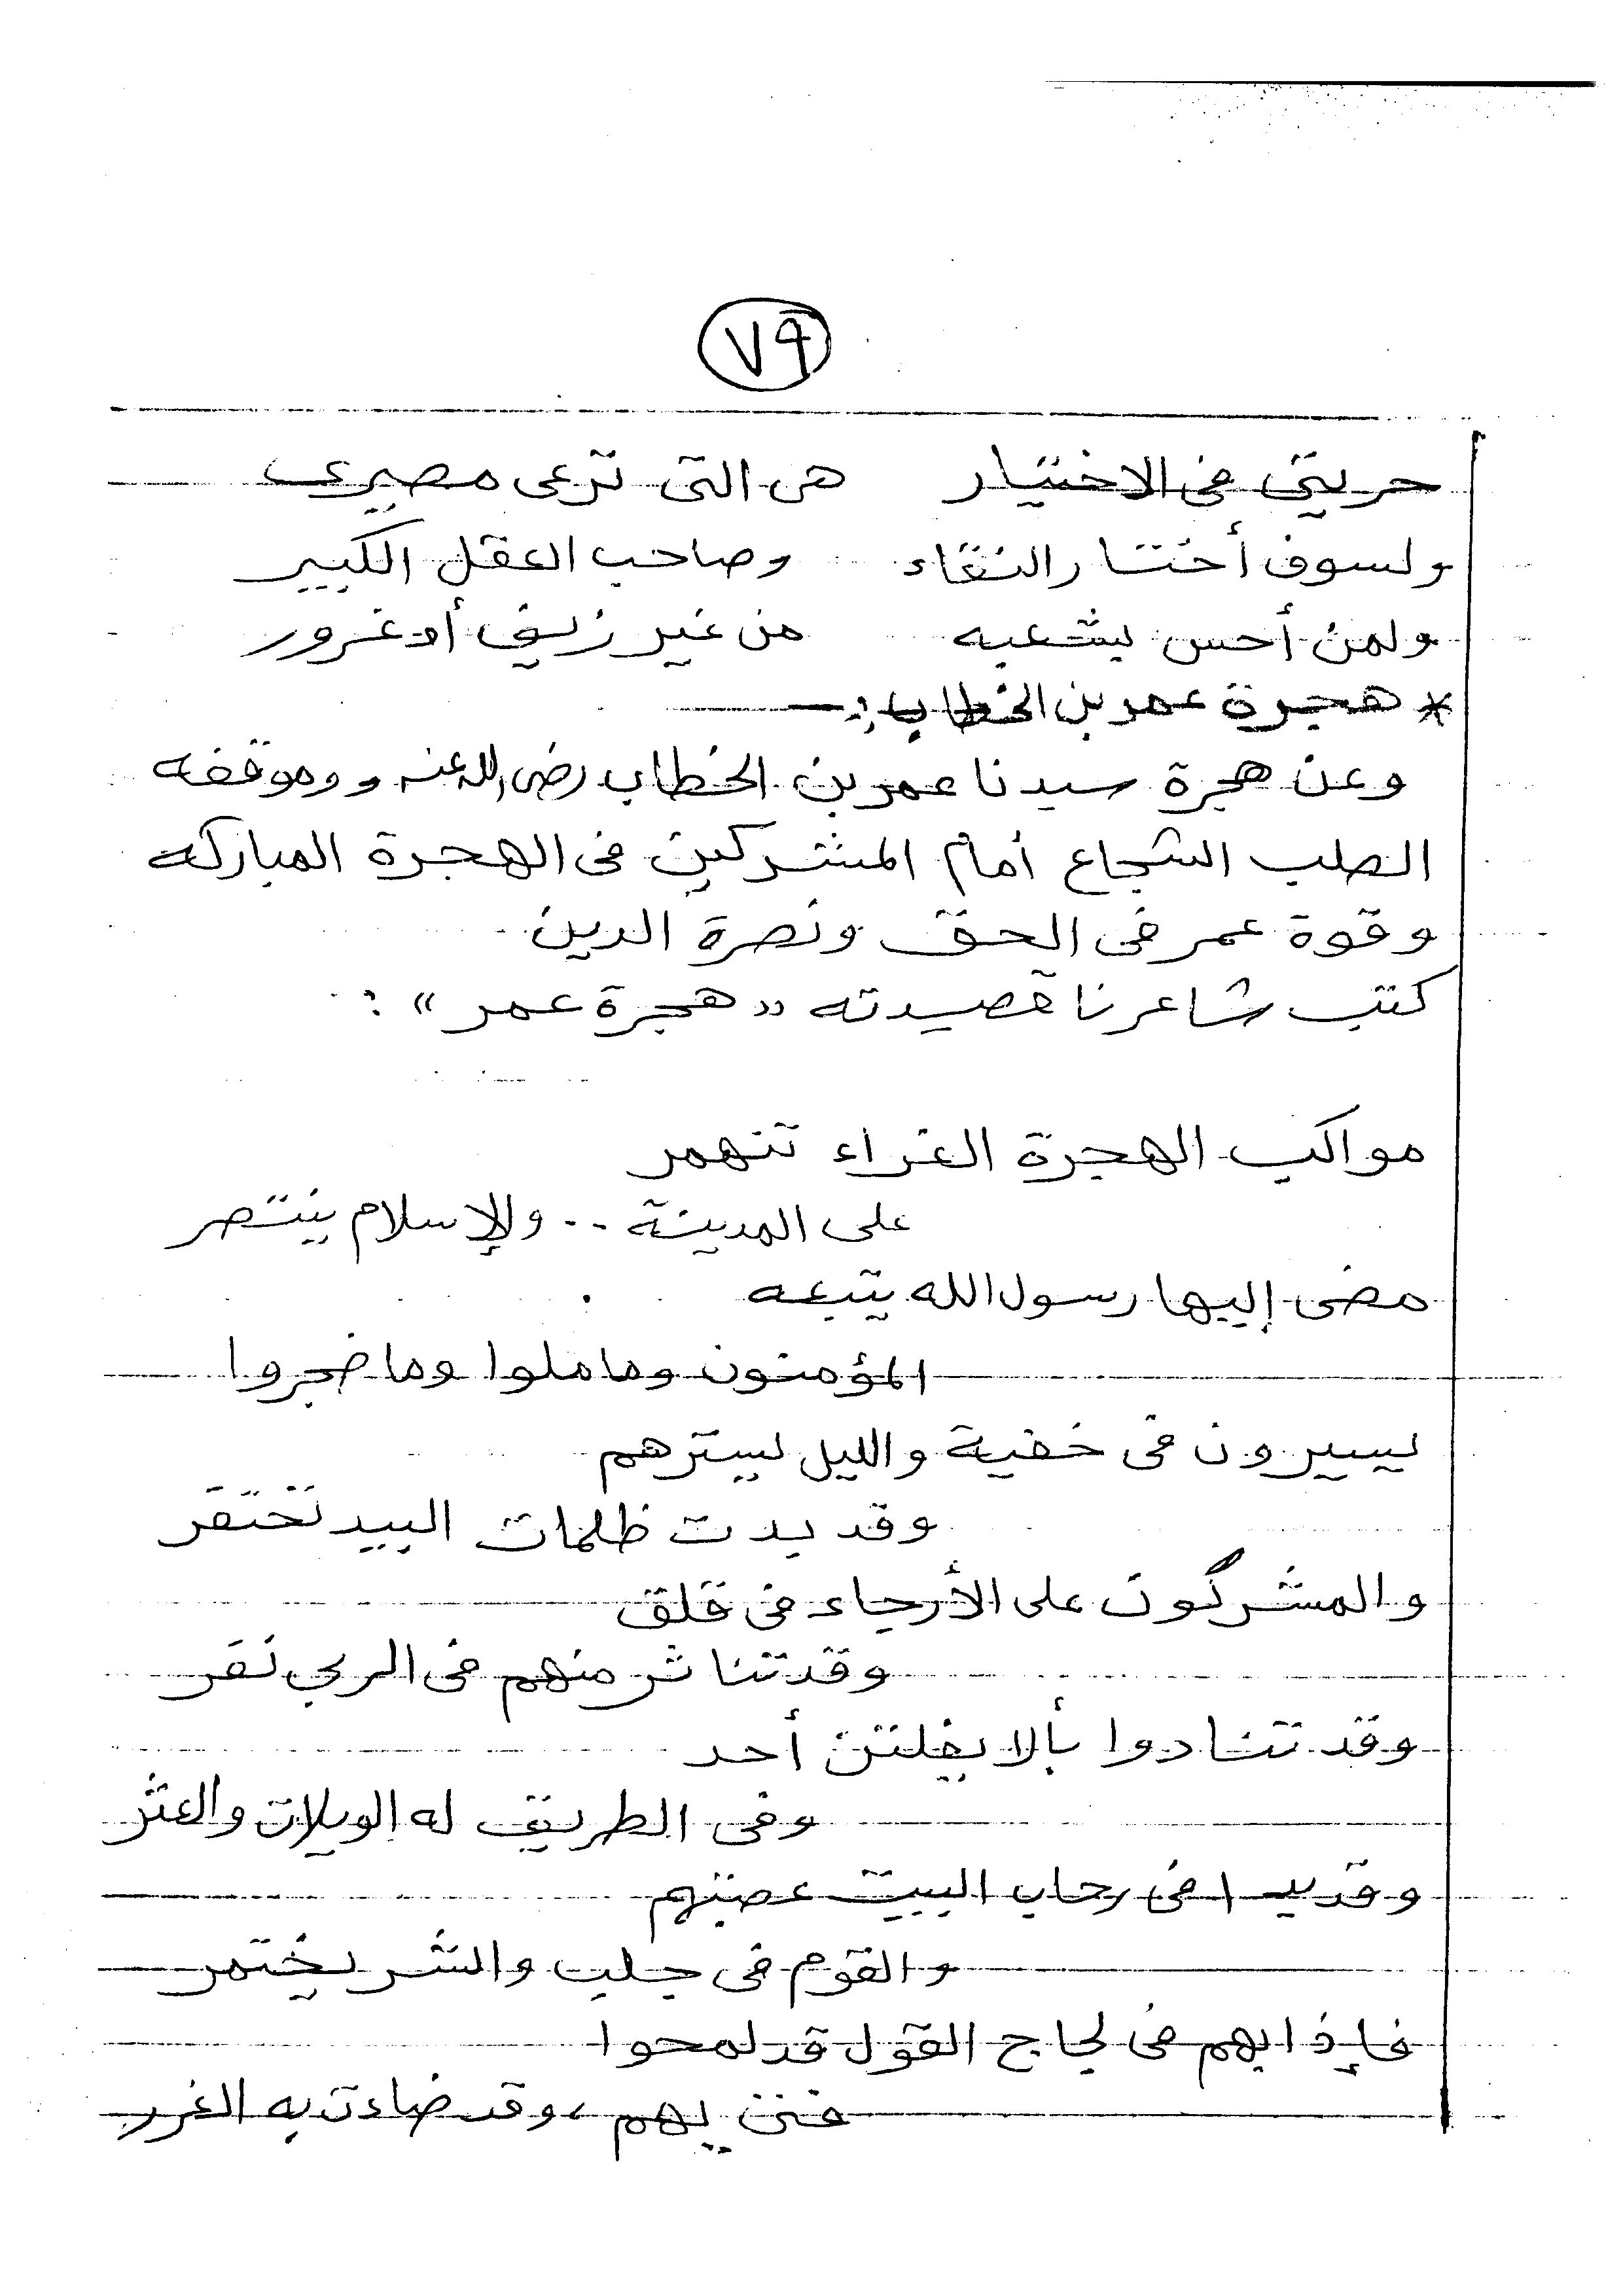 ٧٩
حريتي فى الاختيار هى التى ترعى مصيرى
ولسوف أختار النقاء وصاحب العقل الكبير
ولمن أحس بشعبه من غير زيف أو غرور
* هجرة عمر بن الخطاب :ـ
وعن هجرة سيدنا عمر بن الخطاب رضى الله عنه وموقفه
الصلب الشجاع أمام المشركين فى الهجرة المباركه
وقوة عمر فى الحق ونصرة الدين
كتب شاعرنا قصيدته « هجرة عمر » :
مواكب الهجرة الغراء تنهمر
على المدينة .. والإسلام ينتصر
مضى إليها رسول الله يتبعه
المؤمنون وما ملوا وما ضجروا
يسيرون فى خفية والليل يسترهم
وقد بدت ظلمات البيد تختفر
والمشركون على الأرجاء فى قلق
وقد تناثر منهم فى الربى نفر
وقد تنادوا بألا يفلتن أحد
وفى الطريق له الويلات والعثر
وقد بدا فى رحاب البيت عصبتهم
والقوم فى جلب والشر يختمر
فإذا بهم فى لجاج القول قد لمحوا
فتى بهم ، وقد ضاءت به الغرر